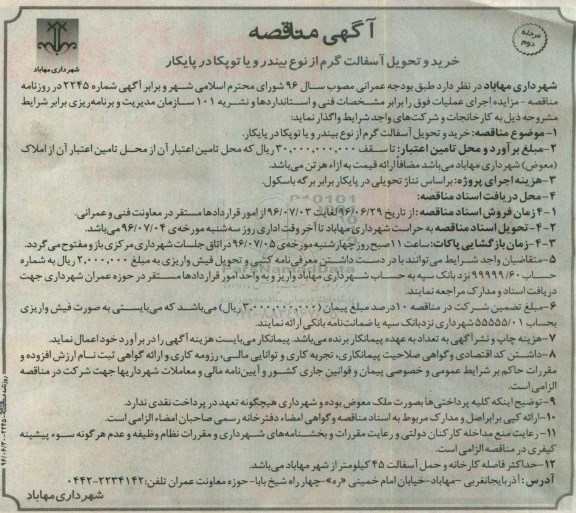 آگهی مناقصه
مرحله دوم
شهرداری مهاباد
خرید و تحویل آسفالت گرم از نوع بیندر و یا توپکا در پایکار
شهرداری مهاباد در نظر دارد طبق بودجه عمرانی مصوب سال ۹۶ شورای محترم اسلامی شهر و برابر آگهی شماره ۲۲۴۵ در روزنامه
مناقصه - مزایده اجرای عملیات فوق را برابر مشخصات فنی و استانداردها و نشریه ۱۰۱ سازمان مدیریت و برنامه‌ریزی برابر شرایط
مشروحه ذیل به کارخانجات و شرکت‌های واجد شرایط واگذار نماید.
۱-موضوع مناقصه: خرید و تحویل آسفالت گرم از نوع بیندر و یا توپکا در پایکار.
۲-مبلغ برآورد و محل تامین اعتبار: تا سقف ۳۰,۰۰۰,۰۰۰,۰۰۰ ریال که محل تامین اعتبار آن از محل تامین اعتبار آن از املاک
(معوض) شهرداری مهاباد می‌باشد مضافاً ارائه قیمت به ازاء هر تن می‌باشد.
۳-هزینه اجرای پروژه: براساس تناژ تحویلی در پایکار برابر برگه باسکول.
۴-محل دریافت اسناد مناقصه:
۴-۱-زمان فروش اسناد مناقصه: از تاریخ ۹۶/۰۶/۲۹ لغایت ۹۶/۰۷/۰۳ از امور قراردادها مستقر در معاونت فنی و عمرانی.
۴-۲-تحویل اسناد مناقصه به حراست شهرداری مهاباد تا آخر وقت اداری روز سه‌شنبه مورخه‌ی ۹۶/۰۷/۰۴ می‌باشد.
۴-۳-زمان بازگشایی پاکات: ساعت ۱۱ صبح روز چهارشنبه مورخه‌ی ۹۶/۰۷/۰۵ در اتاق جلسات شهرداری مرکزی باز و مفتوح می‌گردد.
۵-متقاضیان واجد شرایط می‌توانند با در دست داشتن معرفی‌نامه کتبی و تحویل فیش واریزی به مبلغ ۲,۰۰۰,۰۰۰ ریال به شماره
حساب ۹۹۹۹۹/۶۰ نزد بانک سپه به حساب شهرداری مهاباد واریز و به واحد امور قراردادها مستقر در حوزه عمران شهرداری جهت
دریافت اسناد و مدارک مراجعه نمایند.
۶-مبلغ تضمین شرکت در مناقصه ۱۰ درصد مبلغ پیمان (۳,۰۰۰,۰۰۰,۰۰۰ ریال) می‌باشد که می‌بایستی به صورت فیش واریزی
بحساب ۵۵۵۵۵/۰۱ شهرداری نزد بانک سپه یا ضمانت‌نامه بانکی ارائه نمائند.
۷-هزینه چاپ و نشر آگهی به تعداد به عهده پیمانکار برنده می‌باشد. پیمانکار می‌بایست هزینه آگهی را در برآورد خود اعمال نماید.
۸-داشتن کد اقتصادی و گواهی صلاحیت پیمانکاری، تجربه کاری و توانایی مالی، رزومه کاری و ارائه گواهی ثبت نام ارزش افزوده و
مقررات حاکم بر شرایط عمومی و خصوصی پیمان و قوانین جاری کشور و آیین‌نامه مالی و معاملات شهرداریها جهت شرکت در مناقصه
الزامی است.
۹-توضیح اینکه کلیه پرداختی‌ها بصورت ملک معوض بوده و شهرداری هیچگونه تعهد در پرداخت نقدی ندارد.
۱۰-ارائه کپی برابر اصل و مدارک مربوط به اسناد مناقصه و گواهی امضاء دفترخانه رسمی صاحبان امضاء الزامی است.
۱۱-رعایت منع مداخله کارکنان دولتی و رعایت مقررات و بخشنامه‌های شهرداری و مقررات نظام وظیفه و عدم هرگونه سوء پیشینه
کیفری در مناقصه الزامی است.
۱۲-حداکثر فاصله کارخانه و حمل آسفالت ۴۵ کیلومتر از شهر مهاباد می‌باشد.
آدرس: آذربایجانغربی -مهاباد-خیابان امام خمینی «ره»-چهارراه شیخ بابا- حوزه معاونت عمران تلفن: ۲۲۳۴۱۴۲-۰۴۴۲
شهرداری مهاباد